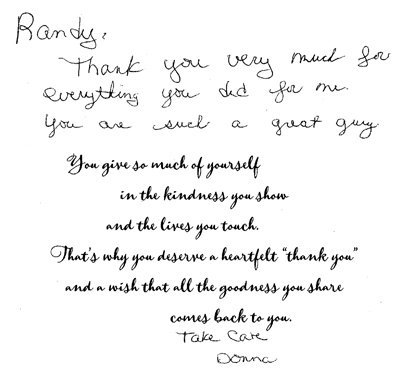 Randy,
Thank you very much for
everything you did for me.
You are such a great guy.
You give so much of yourself
in the kindness you show
and the lives you touch.
That's why you deserve a heartfelt "thank you"
and a wish that all the goodness you share
comes back to you.
Take Care
Donna